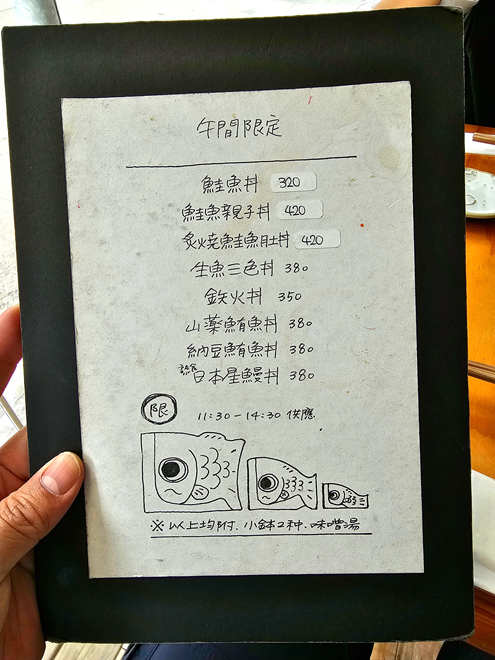 午間限定
鮭魚丼 320
鮭魚親子丼 420
炙燒鮭魚肚丼 420
生魚三色丼 380
鉄火丼 350
山薬鮪魚丼 380
納豆鮪魚丼 380
日本星鰻丼 380
限 11:30-14:30 供應.
※以上均附.小鉢2种.味噌湯